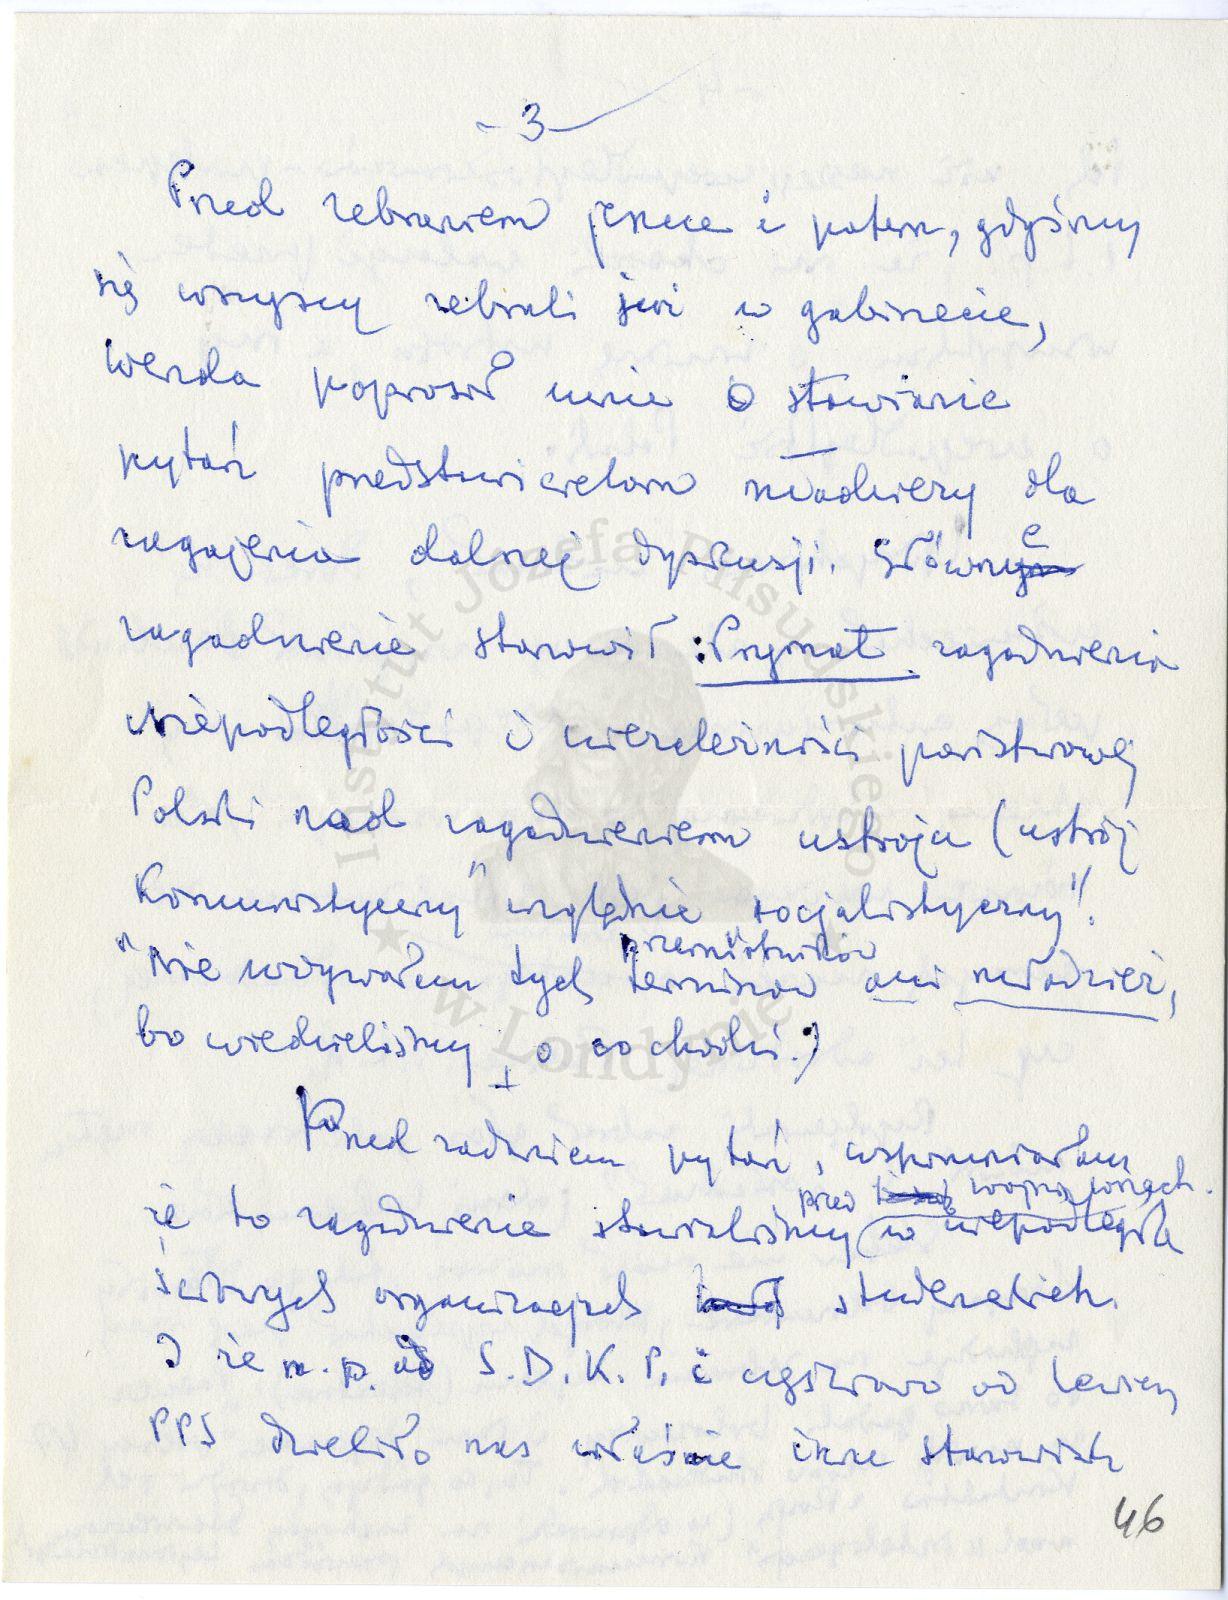 - 3 -
Przed zebraniem jeszcze i potem, gdyśmy
się wszyscy zebrali już w gabinecie,
Werda poprosił mnie o stawianie
pytań przedstawicielom młodzieży dla
zagajenia dalszej dyskusji. Główne
zagadnienie stanowił: Prymat zagadnienia
niepodległości i niezależności państwowej
Polski nad zagadnieniem ustroju (ustrój
komunistyczny" względnie socjalistyczny"!
"Nie używałem tych terminów ani młodzież,
przymiotników
bo wiedzieliśmy, o co chodzi.)
Przed zadaniem pytań, wspomniałem
że to zagadnienie stawialiśmy (w niepodległo
przed wojną
ściowych organizacjach studenckich.
I że n.p. od S.D.K.P. i częściowo od Lewicy
PPS dzieliło nas właśnie inne stanowisko
46
Instytut Józefa Piłsudskiego
w Londynie